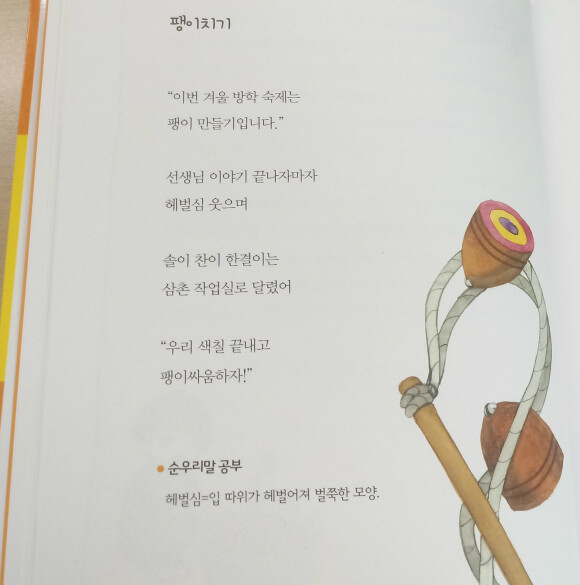 팽이치기
“이번 겨울 방학 숙제는
팽이 만들기입니다.”
선생님 이야기 끝나자마자
헤벌심 웃으며
솔이 찬이 한결이는
삼촌 작업실로 달렸어
“우리 색칠 끝내고
팽이싸움하자!”
● 순우리말 공부
헤벌심=입 따위가 헤벌어져 벌쭉한 모양.